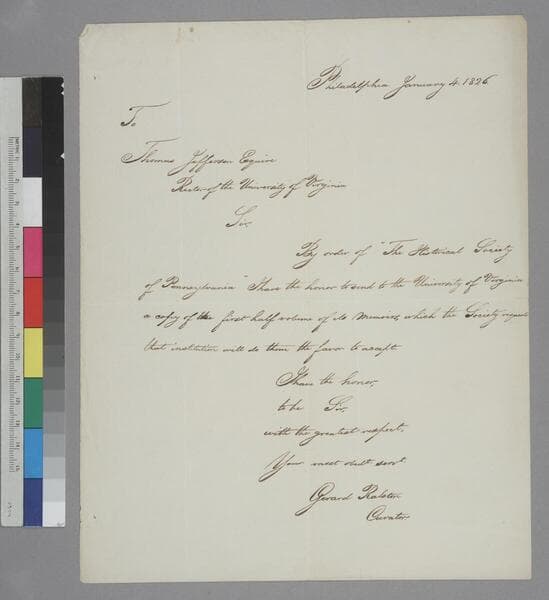 Philadelphia January 4. 1826.
To
Thomas Jefferson Esquire
Rector of the University of Virginia
Sir,
By order of "The Historical Society
of Pennsylvania" I have the honor to send to the University of Virginia
a copy of the first half volume of its Memoirs, which the Society request
that institution will do them the favor to accept
I have the honor,
to be Sir,
with the greatest respect,
Your most obdt servt
Gerard Ralston
Curator.